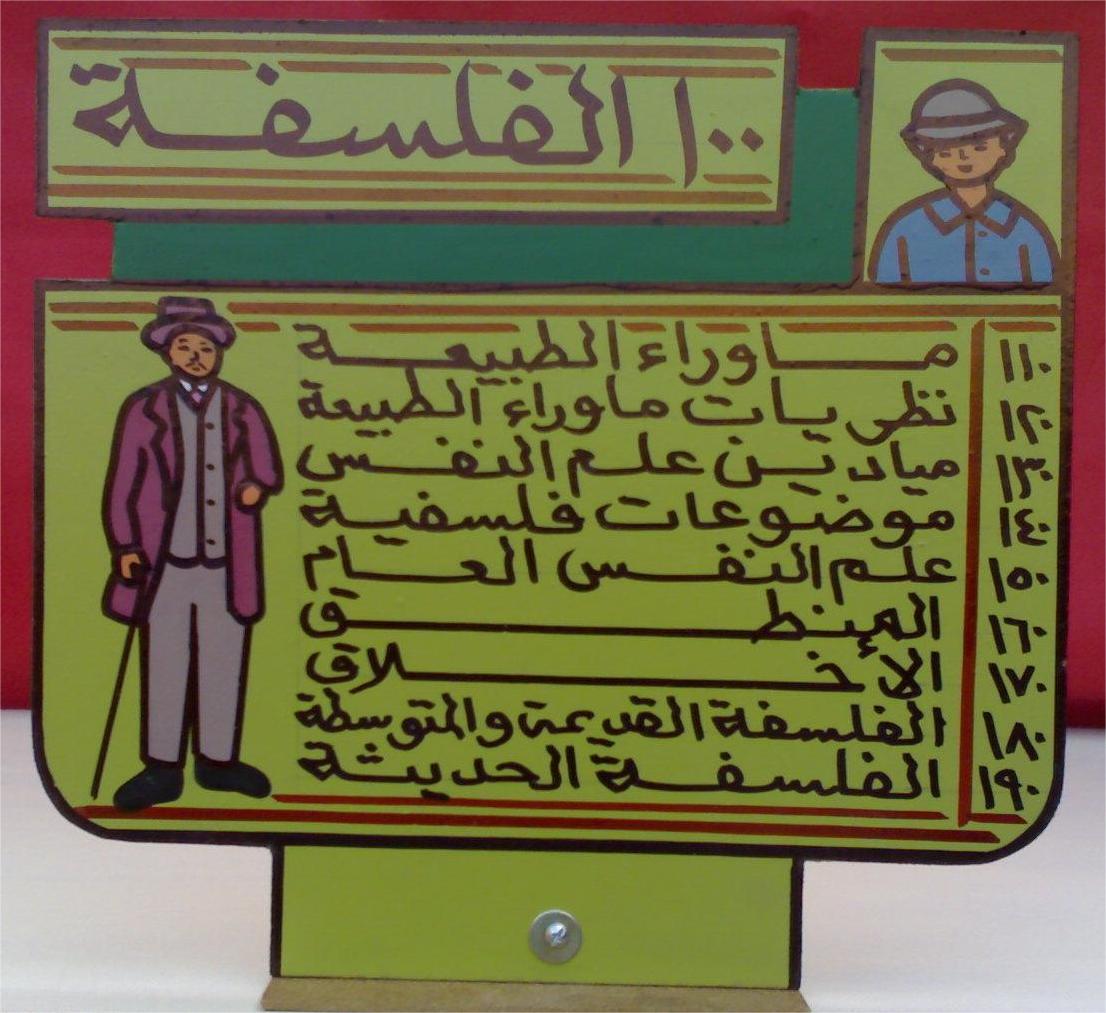 ١٠٠ الفلسفة
١١٠ ماوراء الطبيعة
١٢٠ نظريات ماوراء الطبيعة
١٣٠ ميادين علم النفس
١٤٠ موضوعات فلسفية
١٥٠ علم النفس العام
١٦٠ المنطق
١٧٠ الاخلاق
١٨٠ الفلسفة القديمة والمتوسطة
١٩٠ الفلسفة الحديثة